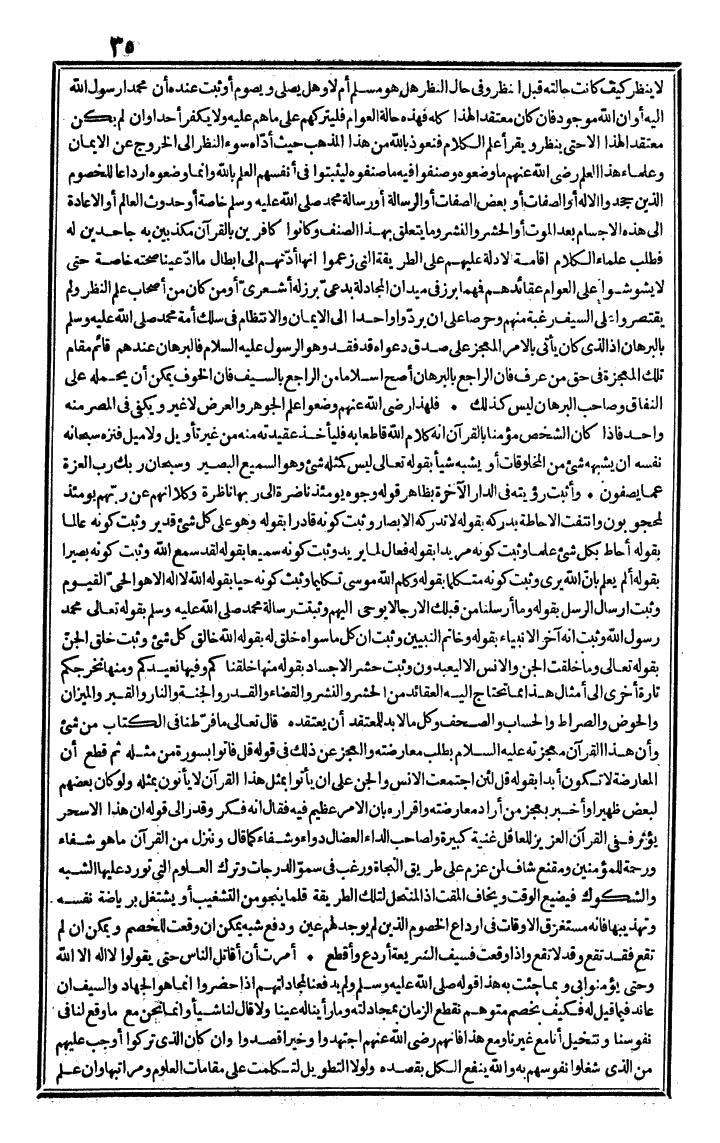 ٣٥
لا ينظر كيف كانت حالته قبل النظر وفى حال النظر هل هو مسلم أم لا وهل يصلى ويصوم أو ثبت عنده أن محمدا رسول الله
اليه أو ان الله موجود فان كان معتقد الهذا كله فهذه حالة العوام فليتركهم على ماهم عليه ولا يكفر أحدا وان لم يكن
معتقد الهذا الا حتى ينظر ويقرأ علم الكلام فنعوذ بالله من هذا المذهب حيث أدّاه سوء النظر الى الخروج عن الايمان
وعلماء هذا العلم رضى الله عنهم ما وضعوه وصنفوا فيه ما صنفوه ليثبتوا فى أنفسهم العلم بالله وانما وضعوه ارداعا للخصوم
الذين جحدوا الاله أو الصفات أو بعض الصفات أو الرسالة أو رسالة محمد صلى الله عليه وسلم خاصة أو حدوث العالم أو الاعادة
الى هذه الاجسام بعد الموت أو الحشر والنشر وما يتعلق بهذا الصنف وكانوا كافرين بالقرآن مكذبين به جاحدين له
فطلب علماء الكلام اقامة الادلة عليهم على الطريقة التى زعموا انها أدّتهم الى ابطال ما ادّعينا صحته خاصة حتى
لا يشوشوا على العوام عقائدهم فمهما برز فى ميدان المجادلة بدعى برز له أشعرى أو من كان من أصحاب علم النظر ولم
يقتصروا على السيف رغبة منهم وحرصا على ان يردّوا واحدا الى الايمان والانتظام فى سلك أمة محمد صلى الله عليه وسلم
بالبرهان اذ الذى كان يأتى بالامر المعجز على صدق دعواه قد فقد وهو الرسول عليه السلام فالبرهان عندهم قائم مقام
تلك المعجزة فى حق من عرف فان الراجع بالبرهان أصح اسلاما من الراجع بالسيف فان الخوف يمكن أن يحمله على
النفاق وصاحب البرهان ليس كذلك • فلهذا رضى الله عنهم وضعوا علم الجوهر والعرض لا غير ويكفى فى المصر منه
واحد فاذا كان الشخص مؤمنا بالقرآن انه كلام الله قاطعا به فليأخذ عقيدته منه من غير تأويل ولا ميل فنزه سبحانه
نفسه ان يشبهه شئ من المخلوقات أو يشبه شيأ بقوله تعالى ليس كمثله شئ وهو السميع البصير وسبحان ربك رب العزة
عما يصفون • وأثبت رؤيته فى الدار الآخرة بظاهر قوله وجوه يومئذ ناضرة الى ربها ناظرة وكلا انهم عن ربهم يومئذ
لمحجوبون وانتفت الاحاطة بدركه بقوله لا تدركه الابصار وثبت كونه قادرا بقوله وهو على كل شئ قدير وثبت كونه عالما
بقوله أحاط بكل شئ علما وثبت كونه مريدا بقوله فعال لما يريد وثبت كونه سميعا بقوله لقد سمع الله وثبت كونه بصيرا
بقوله ألم يعلم بأنّ الله يرى وثبت كونه متكلما بقوله وكلم الله موسى تكليما وثبت كونه حيا بقوله الله لا اله الا هو الحىّ القيوم
وثبت ارسال الرسل بقوله وما أرسلنا من قبلك الا رجالا يوحى اليهم وثبتت رسالة محمد صلى الله عليه وسلم بقوله تعالى محمد
رسول الله وثبت انه آخر الانبياء بقوله وخاتم النبيين وثبت ان كل ما سواه خلق له بقوله الله خالق كل شئ وثبت خلق الجنّ
بقوله تعالى وما خلقت الجن والانس الا ليعبدون وثبت حشر الاجساد بقوله منها خلقناكم وفيها نعيدكم ومنها نخرجكم
تارة أخرى الى أمثال هذا مما تحتاج اليه العقائد من الحشر والنشر والقضاء والقدر والجنة والنار والقبر والميزان
والحوض والصراط والحساب والصحف وكل ما لا بد للمعتقد أن يعتقده قال تعالى ما فرّطنا فى الكتاب من شئ
وأن هذا القرآن معجزته عليه السلام بطلب معارضته والعجز عن ذلك فى قوله قل فأتوا بسورة من مثله ثم قطع أن
المعارضة لا تكون أبدا بقوله قل لئن اجتمعت الانس والجن على ان يأتوا بمثل هذا القرآن لا يأتون بمثله ولو كان بعضهم
لبعض ظهيرا وأخبر بعجز من أراد معارضته واقراره بان الامر عظيم فيه فقال انه فكر وقدر الى قوله ان هذا الا سحر
يؤثر ففى القرآن العزيز للعاقل غنية كبيرة ولصاحب الداء العضال دواء وشفاء كما قال وننزل من القرآن ما هو شفاء
ورحمة للمؤمنين ومقنع شاف لمن عزم على طريق النجاة ورغب فى سموّ الدرجات وترك العلوم التى تورد عليها الشبه
والشكوك فيضيع الوقت ويخاف المقت اذ المنتحل لتلك الطريقة قلما ينجو من التشغيب أو يشتغل برياضة نفسه
وتهذيبها فانه مستغرق الاوقات فى ارداع الخصوم الذين لم يوجد لهم عين ودفع شبه يمكن ان وقعت للخصم ويمكن ان لم
تقع فقد تقع وقد لا تقع واذا وقعت فسيف الشريعة أردع وأقطع • أمرت أن أقاتل الناس حتى يقولوا لا اله الا الله
وحتى يؤمنوا بى وبما جئت به هذا قوله صلى الله عليه وسلم ولم يدفعنا لمجادلتهم اذا حضروا انما هو الجهاد والسيف ان
عاند فيما قيل له فكيف بخصم متوهم نقطع الزمان بمجادلته وما رأينا له عينا ولا قال لنا شيأ وانما نحن مع ما وقع لنا فى
نفوسنا ونتخيل أنا مع غيرنا ومع هذا فانهم رضى الله عنهم اجتهدوا وخيرا قصدوا وان كان الذى تركوا أوجب عليهم
من الذى شغلوا نفوسهم به والله ينفع الكل بقصده ولولا التطويل لتكلمت على مقامات العلوم ومراتبها وان علم